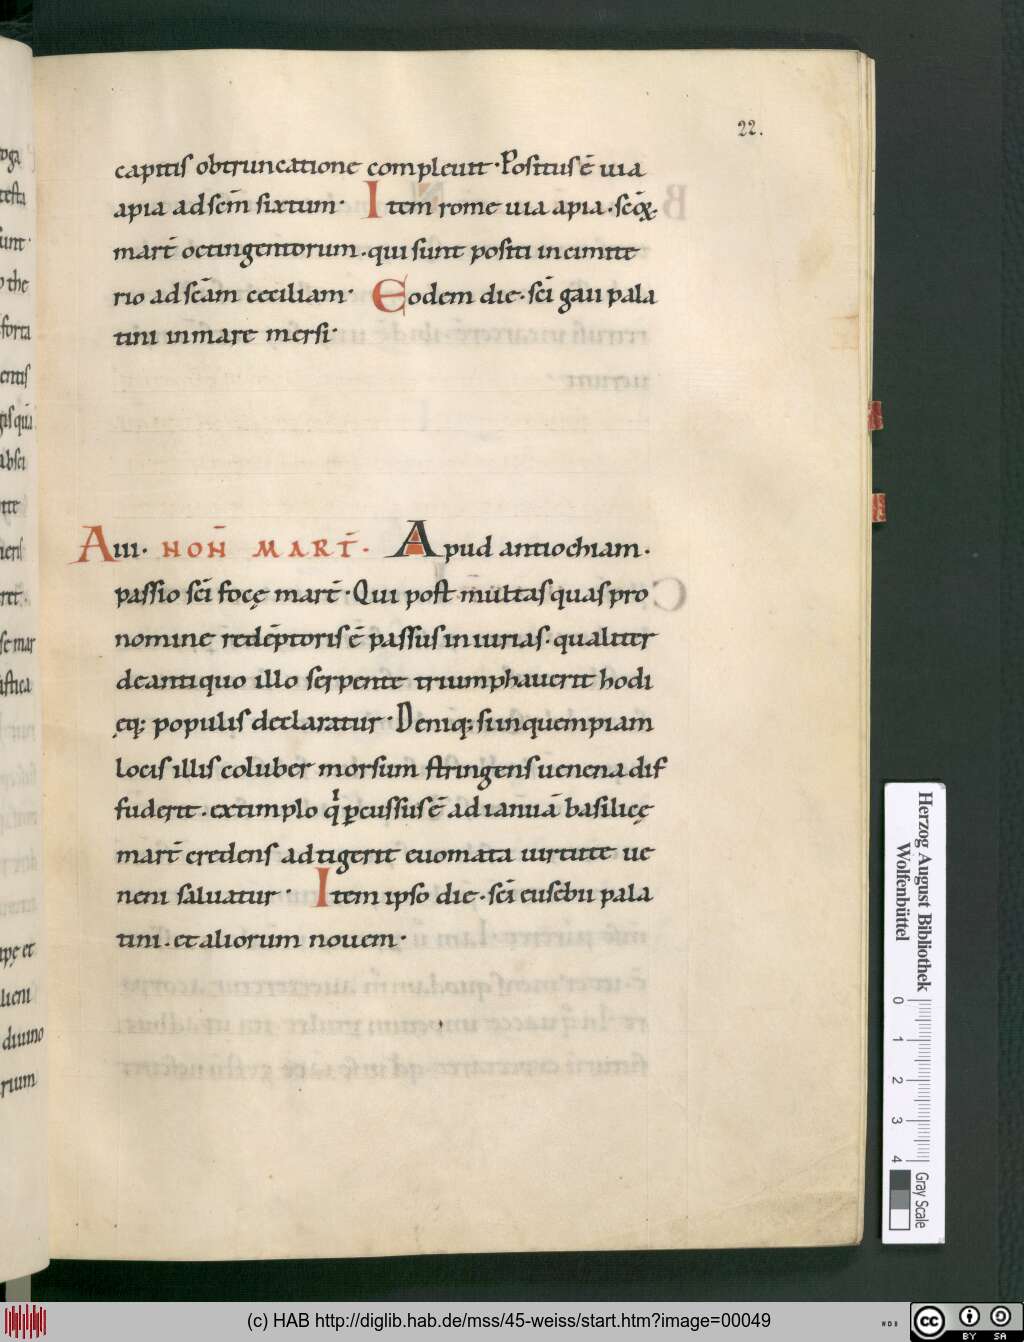 22.
capitis obtruncatione compleuit · Positus ē uia
apia ad scm̄ sixtum · Item rome uia apia · scōꝝ ·
mart̄ octingentorum · qui sunt positi in cimite
rio ad scām ceciliam · Eodem die · sci̅ gaii pala
tini in mare mersi ·
A iii · NON̄ MART̄ · Apud antiochiam ·
passio sci̅ focę mart̄ · Qui post multas quas pro
nomine redēptoris ē passus iniurias · qualiter
de antiquo illo serpente triumphauerit hodi
ęq; populis declaratur · Deniq; si inquempiam
locis illis coluber morsum stringens uenena dif
fuderit · extimplo q̇ ꝑcussus ē ad ianuā basilicę
mart̄ credens adtigerit euomata uirtute ue
neni saluatur · Item ipso die · sci̅ eusebii pala
tini · et aliorum nouem ·
Herzog August Bibliothek
Wolfenbüttel
0 1 2 3 4
Gray Scale
(c) HAB http://diglib.hab.de/mss/45-weiss/start.htm?image=00049
WDB
cc BY SA